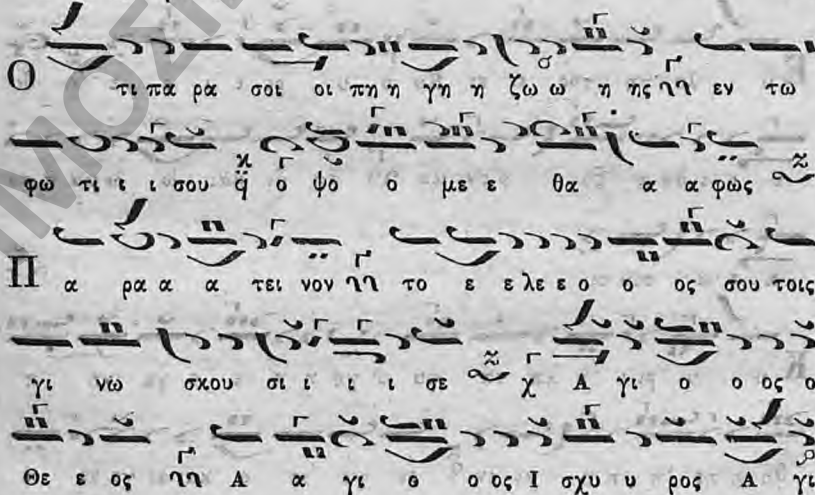 Ο τι πα ρα σοι οι πη η γη η ζω ω η ης εν τω
φω τι ι ι σου ο ψο ο με ε θα α α φως
Π α ρα α α τει νον το ε ε λε ε ο ο ος σου τοις
γι νω σκου σι ι ι ι σε Α γι ο ο ος ο
Θε ε ος Α α γι ο ο ος Ι σχυ υ ρος Α γι